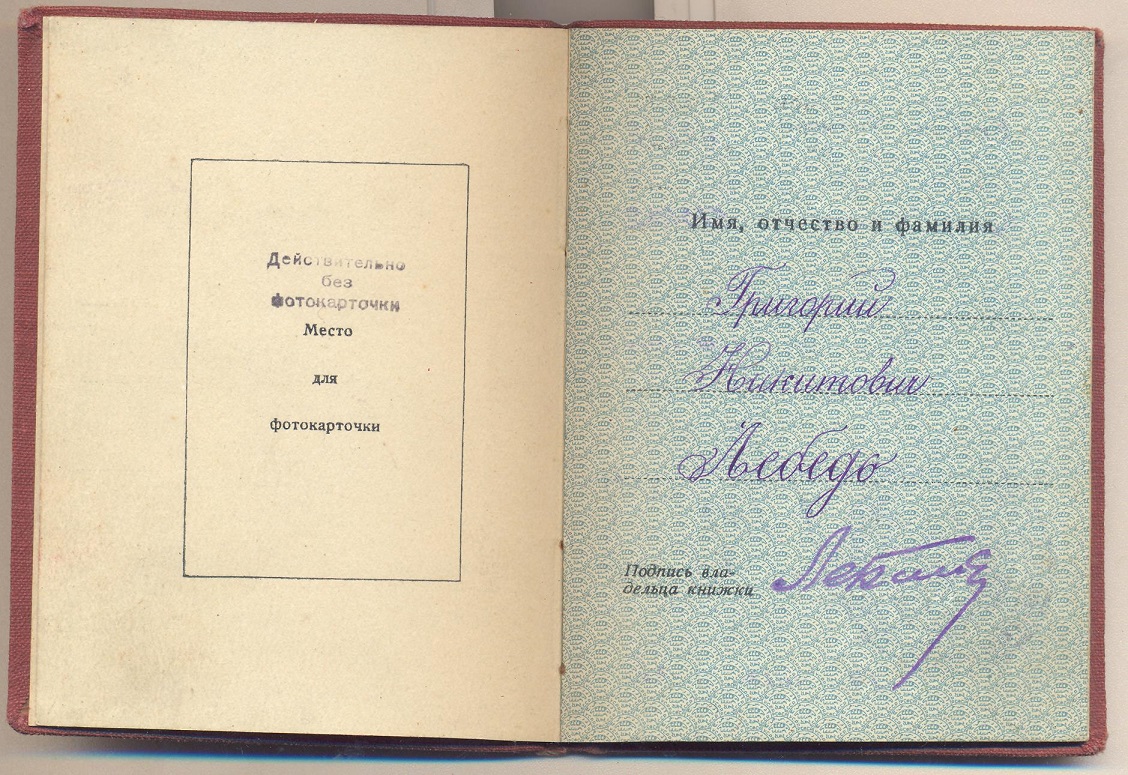 Действительно
без
фотокарточки
Место
для
фотокарточки
Имя, отчество и фамилия
Григорий
Никитович
Лебедь
Подпись вла-
дельца книжки